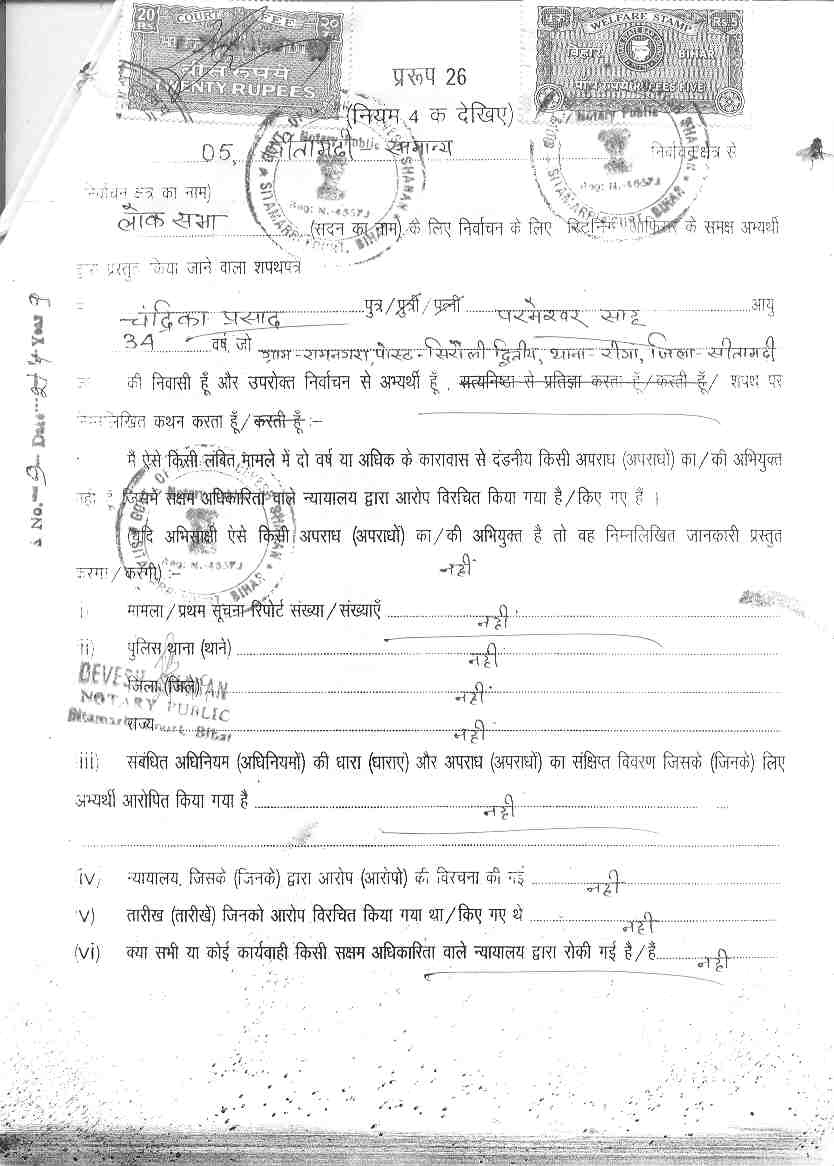 20 Rs COURT FEE 20
बीस रूपये
TWENTY RUPEES
WELFARE STAMP
बिहार BIHAR
पाँच रुपये RUPEES FIVE
प्ररूप 26
(नियम 4 क देखिए)
Notary Public
05, सीतामढ़ी सामान्य निर्वाचन क्षेत्र से
निर्वाचन क्षेत्र का नाम)
लोक सभा (सदन का नाम) के लिए निर्वाचन के लिए रिटर्निंग ऑफिसर के समक्ष अभ्यर्थी
द्वारा प्रस्तुत किया जाने वाला शपथपत्र
चंद्रिका प्रसाद पुत्र/पुत्री/पत्नी परमेश्वर साह आयु
34 वर्ष, जो ग्राम-रामनगरा, पोस्ट-सिरौली द्वितीय, थाना-रीगा, जिला-सीतामढ़ी
की निवासी हूँ और उपरोक्त निर्वाचन से अभ्यर्थी हूँ, सत्यनिष्ठा से प्रतिज्ञा करता हूँ/करती हूँ/ शपथ पर
निम्नलिखित कथन करता हूँ/करती हूँ :-
मैं ऐसे किसी लंबित मामले में दो वर्ष या अधिक के कारावास से दंडनीय किसी अपराध (अपराधों) का/की अभियुक्त
नहीं हूँ जिसमें सक्षम अधिकारिता वाले न्यायालय द्वारा आरोप विरचित किया गया है/किए गए हैं ।
(यदि अभिसाक्षी ऐसे किसी अपराध (अपराधों) का/की अभियुक्त है तो वह निम्नलिखित जानकारी प्रस्तुत
करेगा/करेगी) :- नहीं
i) मामला/प्रथम सूचना रिपोर्ट संख्या/संख्याएँ नहीं
ii) पुलिस थाना (थाने) नहीं
जिला (जिले) नहीं
राज्य नहीं
DEVESH SHARAN
NOTARY PUBLIC
Sitamarhi Court Bihar
iii) संबंधित अधिनियम (अधिनियमों) की धारा (धाराए) और अपराध (अपराधों) का संक्षिप्त विवरण जिसके (जिनके) लिए
अभ्यर्थी आरोपित किया गया है नहीं
iv) न्यायालय, जिसके (जिनके) द्वारा आरोप (आरोपो) की विरचना की गई नहीं
v) तारीख (तारीखें) जिनको आरोप विरचित किया गया था/किए गए थे नहीं
(vi) क्या सभी या कोई कार्यवाही किसी सक्षम अधिकारिता वाले न्यायालय द्वारा रोकी गई है/हैं नहीं